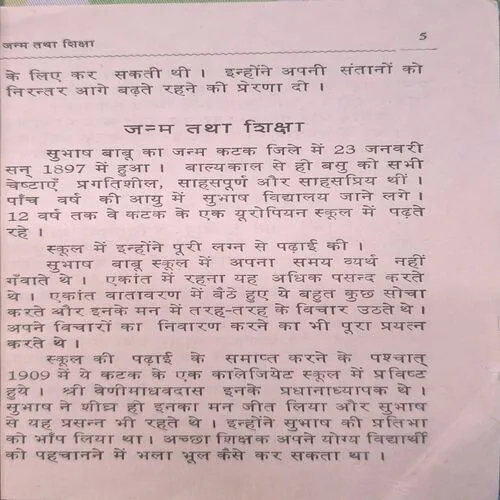 जन्म तथा शिक्षा 5
के लिए कर सकती थी । इन्होंने अपनी संतानों को
निरन्तर आगे बढ़ते रहने की प्रेरणा दो ।
जन्म तथा शिक्षा
सुभाष बाबू का जन्म कटक जिले में 23 जनवरी
सन् 1897 में हुआ । बाल्यकाल से हो बसु को सभी
चेष्टाएँ प्रगतिशील, साहसपूर्ण और साहसप्रिय थीं ।
पाँच वर्ष की आयु में सुभाष विद्यालय जाने लगे ।
12 वर्ष तक वे कटक के एक यूरोपियन स्कूल में पढ़ते
रहे ।
स्कूल में इन्होंने पूरी लग्न से पढ़ाई की ।
सुभाष बाबू स्कूल में अपना समय व्यर्थ नहीं
गँवाते थे । एकांत में रहना यह अधिक पसन्द करते
थे । एकांत वातावरण में बैठे हुए ये बहुत कुछ सोचा
करते और इनके मन में तरह-तरह के विचार उठते थे ।
अपने विचारों का निवारण करने का भी पूरा प्रयत्न
करते थे ।
स्कूल की पढ़ाई के समाप्त करने के पश्चात्
1909 में ये कटक के एक कालेजियेट स्कूल में प्रविष्ट
हुये । श्री बेणीमाधवदास इनके प्रधानाध्यापक थे ।
सुभाष ने शीघ्र हो इनका मन जीत लिया और सुभाष
से यह प्रसन्न भी रहते थे । इन्होंने सुभाष की प्रतिभा
को भाँप लिया था । अच्छा शिक्षक अपने योग्य विद्यार्थी
को पहचानने में भला भूल कैसे कर सकता था ।